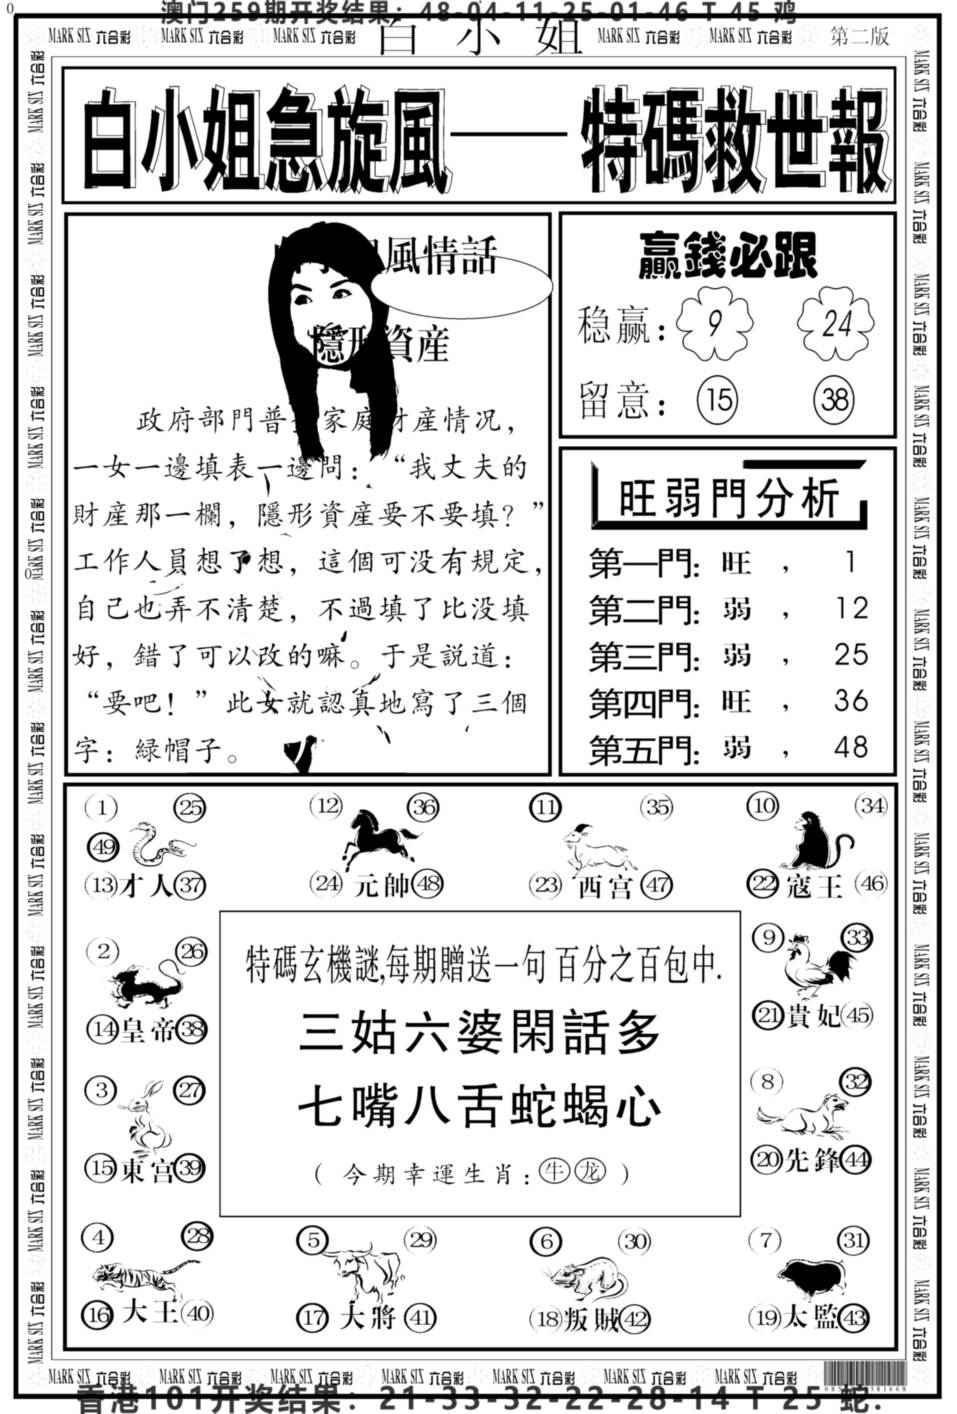 澳门259期开奖结果：48-04-11-25-01-46 T 45 鸡
MARK SIX 六合彩 MARK SIX 六合彩 MARK SIX 六合彩 白小姐 MARK SIX 六合彩 MARK SIX 六合彩 第二版
白小姐急旋風——特碼救世報
風情話
隱形資産
政府部門普 家庭財産情况，
一女一邊填表一邊問：“我丈夫的
財産那一欄，隱形資産要不要填？”
工作人員想了想，這個可没有規定，
自己也弄不清楚，不過填了比没填
好，錯了可以改的嘛。于是説道：
“要吧！”此女就認真地寫了三個
字：緑帽子。
贏錢必跟
稳赢：9 24
留意：15 38
旺弱門分析
第一門：旺，1
第二門：弱，12
第三門：弱，25
第四門：旺，36
第五門：弱，48
① ㉕
㊾
⑬才人㊲
⑫ ㊱
㉔元帥㊽
⑪ ㉟
㉓西宫㊼
⑩ ㉞
㉒寇王㊻
② ㉖
⑭皇帝㊳
③ ㉗
⑮東宫㊴
特碼玄機謎,每期贈送一句百分之百包中.
三姑六婆閑話多
七嘴八舌蛇蝎心
（今期幸運生肖：牛龙）
⑨ ㉝
㉑貴妃㊺
⑧ ㉜
⑳先鋒㊹
④ ㉘
⑯大王㊵
⑤ ㉙
⑰大將㊶
⑥ ㉚
⑱叛賊㊷
⑦ ㉛
⑲太監㊸
MARK SIX 六合彩 MARK SIX 六合彩 MARK SIX 六合彩 MARK SIX 六合彩 MARK SIX 六合彩 MARK SIX 六合彩 MARK SIX 六合彩
香港101开奖结果：21-33-32-22-28-14 T 25 蛇.